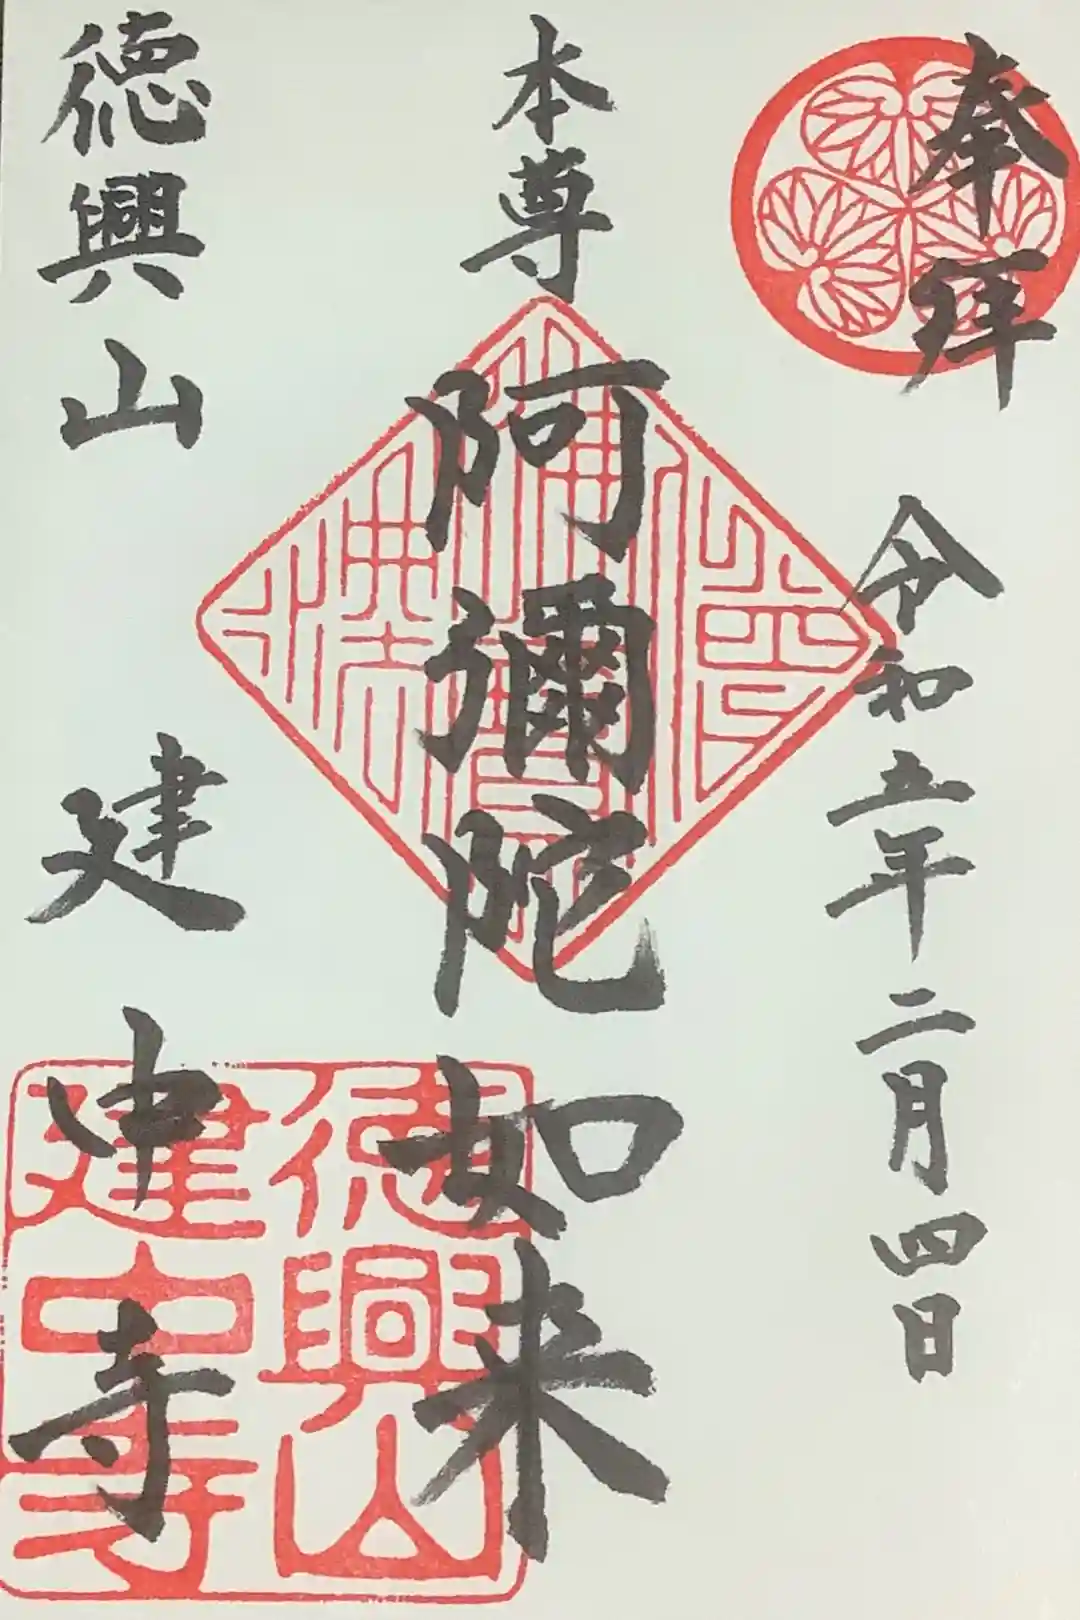 奉拝
令和五年二月四日
本尊
阿彌陀如来
徳興山
建中寺
徳興山
建中寺